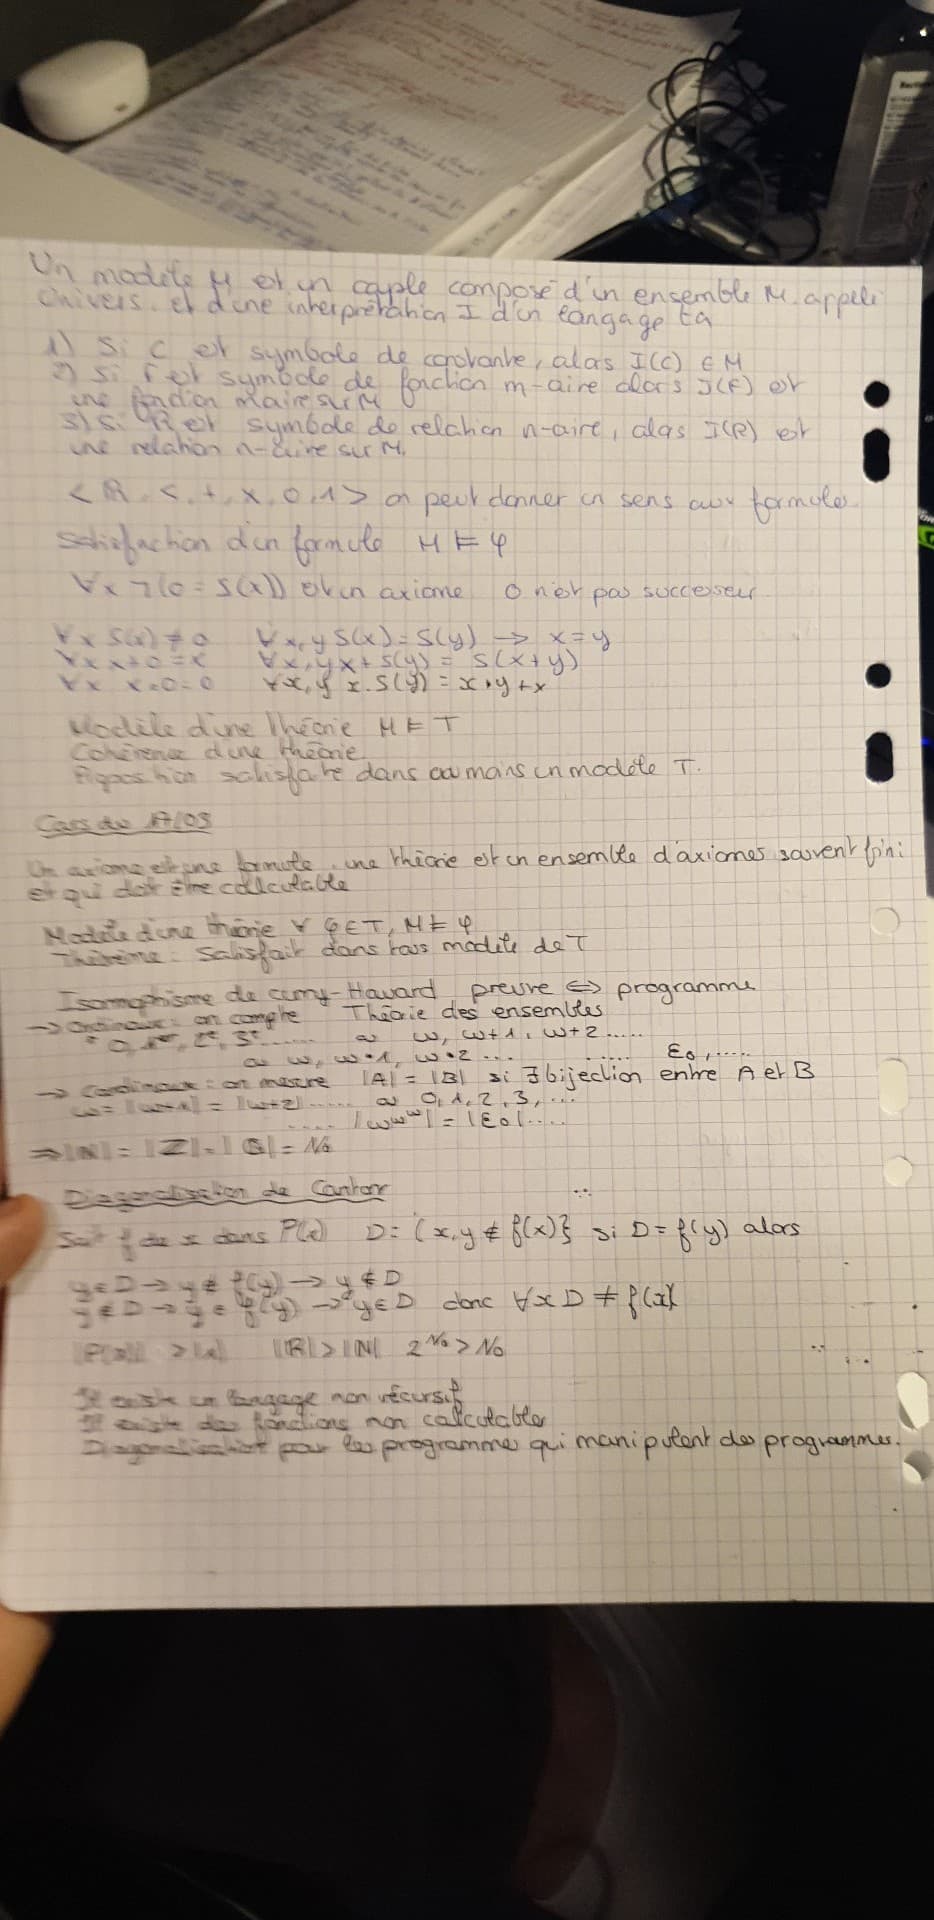 Un modèle M est un couple composé d'un ensemble M appelé
Univers. et d'une interprétation I d'un langage tq
1) Si C est symbole de constante, alors I(C) ∈ M
2) Si F est symbole de fonction m-aire alors I(F) est
une fonction maire sur M
3) Si R est symbole de relation n-aire, alors I(R) est
une relation n-aire sur M.
<R, <, +, x, 0, 1> on peut donner un sens aux formules
Satisfaction d'un formule M ⊨ φ
∀x ¬(0 = S(x)) est un axiome 0 n'est pas successeur
∀x S(x) ≠ 0 ∀x,y S(x) = S(y) → x=y
∀x x+0=x ∀x,y x+S(y) = S(x+y)
∀x x.0=0 ∀x,y x.S(y) = x.y+x
Modèle d'une théorie M ⊨ T
Cohérence d'une théorie
satisfaite dans au moins un modèle T.
Cours du 17/03
Un axiome est une formule, une théorie est un ensemble d'axiomes souvent fini
et qui doit être calculable
Modèle d'une théorie ∀ φ ∈ T, M ⊨ φ
Théorème : Satisfait dans tous modèle de T
Isomorphisme de curry-Howard preuve ⟺ programme
→ Ordinaux : on compte Théorie des ensembles
0, 1er, 2e, 3e ...... ω, ω+1, ω+2 .....
ω, ω•1, ω•2 ... ..... ε0, .....
→ Cardinaux : on mesure |A| = |B| si ∃ bijection entre A et B
ω = |ω+1| = |ω+2| ..... 0, 1, 2, 3, ...
.... |ω^ω^ω| = |ε0| ....
⇒ |N| = |Z| = |Q| = ℵ0
Diagonalisation de Cantor
Soit f de x dans P(x) D = {x, y ∉ f(x)} si D = f(y) alors
y ∈ D → y ∉ f(y) → y ∉ D
y ∉ D → y ∈ f(y) → y ∈ D donc ∀x D ≠ f(x)
|P(x)| > |x| |R| > |N| 2^ℵ0 > ℵ0
Il existe un langage non récursif
Il existe des fonctions non calculables
pour les programmes qui manipulent des programmes.